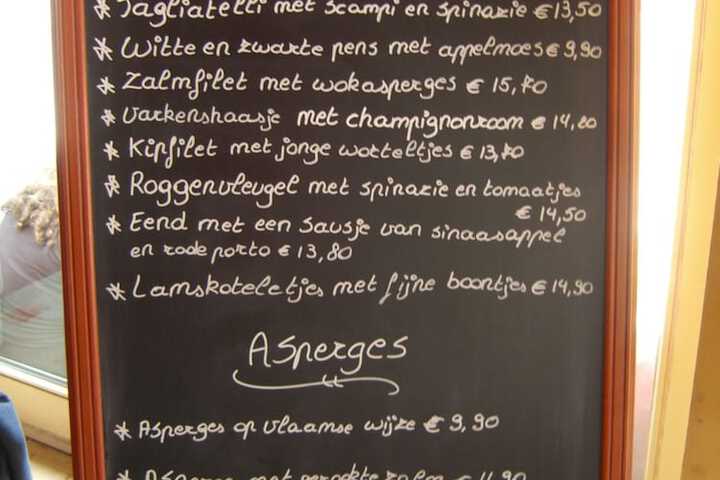 * Tagliatelli met scampi en spinazie € 13,50
* Witte en zwarte pens met appelmoes € 9,90
* Zalmfilet met wokasperges € 15,70
* Varkenshaasje met champignonroom € 14,20
* Kipfilet met jonge worteltjes € 13,70
* Roggenvleugel met spinazie en tomaatjes
€ 14,50
* Eend met een sausje van sinaasappel
en rode porto € 13,80
* Lamskoteletjes met fijne boontjes € 14,90
Asperges
* Asperges op vlaamse wijze € 9,90
* Asperges met gerookte zalm € 11,90